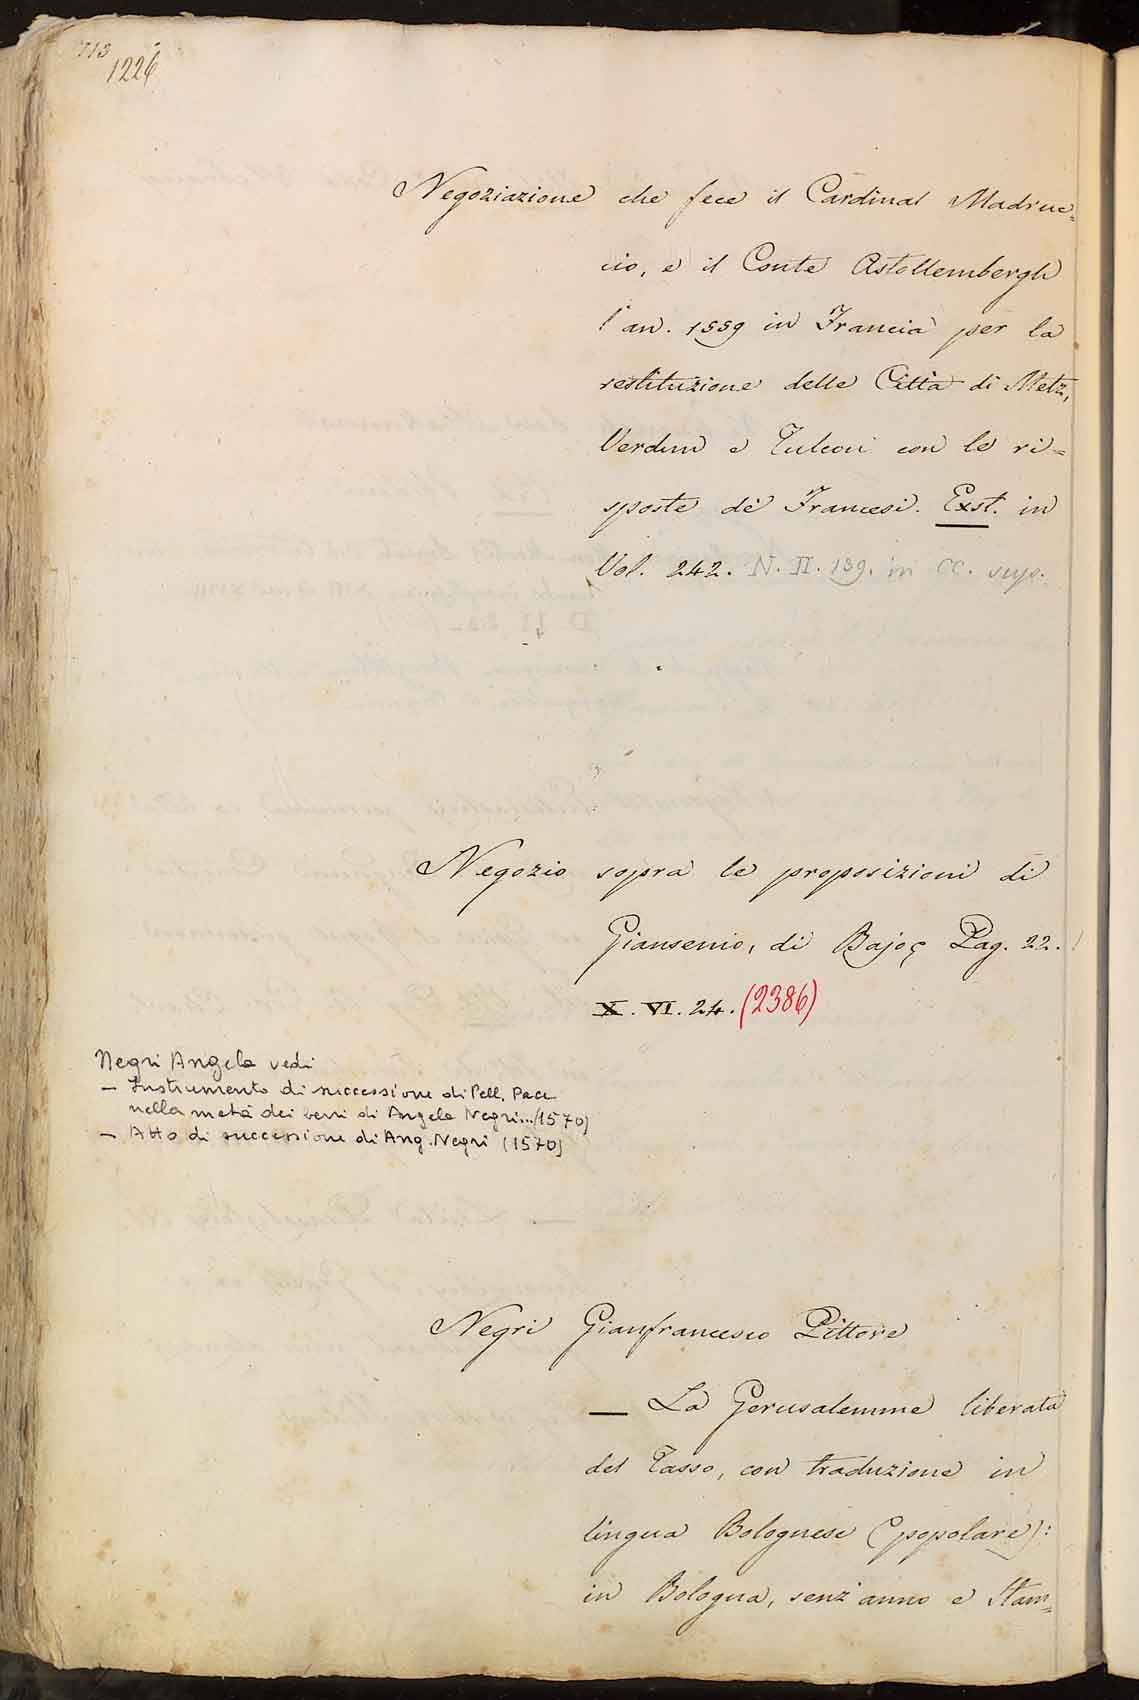 713
1226
Negoziazione che fece il Cardinal Madruc=
cio, e il Conte Astollembergh
l'an. 1559 in Francia per la
restituzione delle Città di Metz,
Verdun e Tulcon con le ri=
sposte de' Francesi. Exst. in
Vol. 242. N. II. 139. in CC. sup.
Negozio sopra le proposizioni di
Giansenio, di Bajo; Pag. 22.
X. VI. 24. (2386)
Negri Angelo vedi
— Instrumento di successione di Pell. Pace
nella metà dei beni di Angelo Negri... (1570)
— Atto di successione di Ang. Negri (1570)
Negri Gianfrancesco Pittore
— La Gerusalemme liberata
del Tasso, con traduzione in
lingua Bolognese (popolare):
in Bologna, senz'anno e Stam=